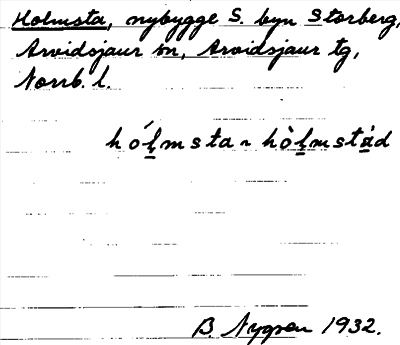 Holmsta, nybygge S. byn Storberg,
Arvidsjaur sn, Arvidsjaur tg,
Norrb. l.
hólmsta ~ hòlmstad
B. Nygren 1932.